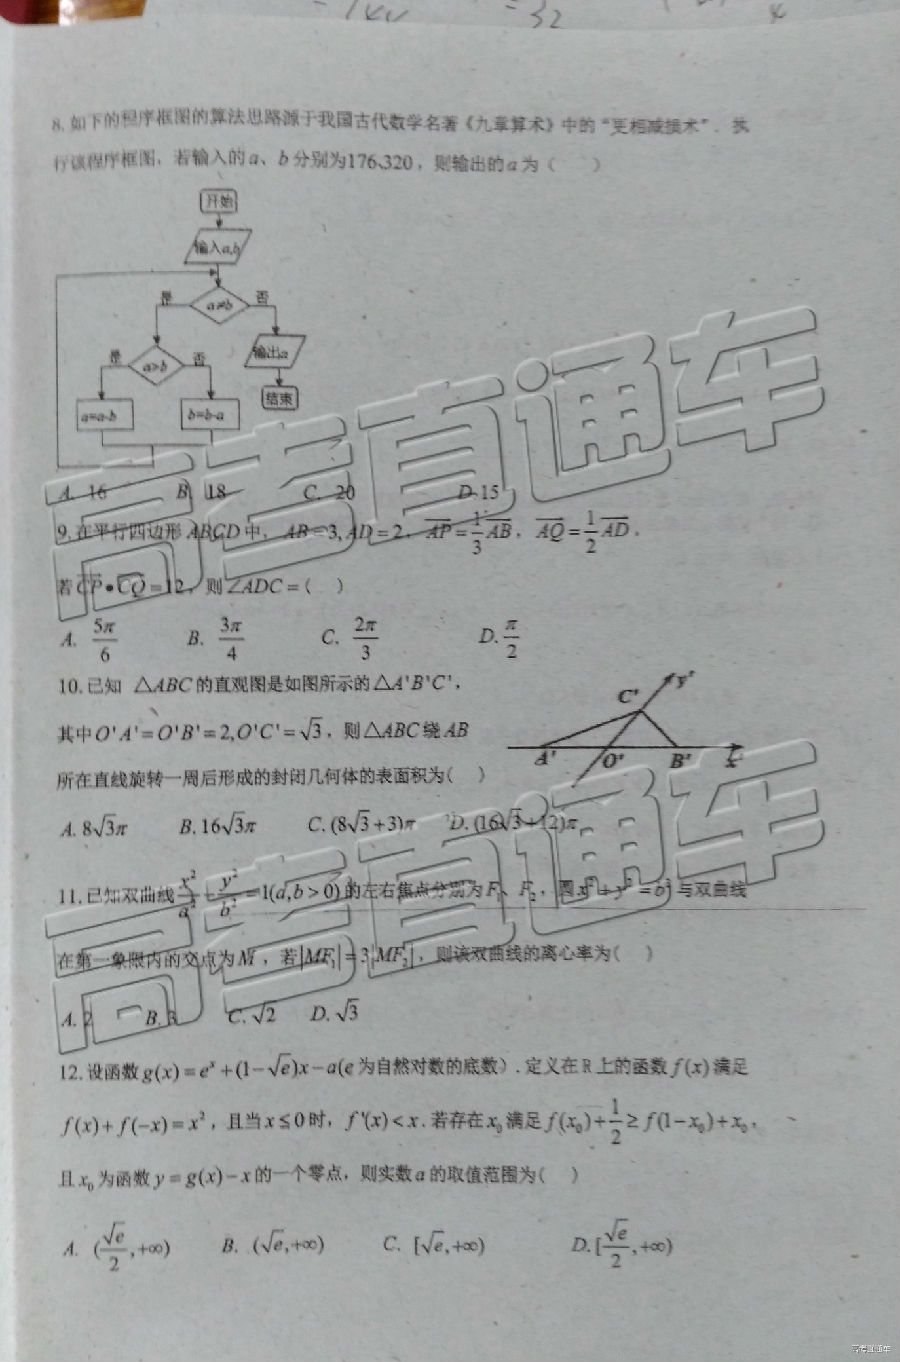 8. 如下的程序框图的算法思路源于我国古代数学名著《九章算术》中的“更相减损术”．执
行该程序框图，若输入的 a、b 分别为176、320，则输出的 a 为（　）
开始
输入a,b
是 a≠b 否
是 a>b 否 输出a
a=a-b b=b-a 结束
A. 16 B. 18 C. 20 D. 15
9. 在平行四边形 ABCD 中，AB = 3, AD = 2，$\overrightarrow{AP}=\frac{1}{3}\overrightarrow{AB}$，$\overrightarrow{AQ}=\frac{1}{2}\overrightarrow{AD}$，
若 $\overrightarrow{CP}•\overrightarrow{CQ}=12$，则∠ADC =（　）
A. $\frac{5π}{6}$ B. $\frac{3π}{4}$ C. $\frac{2π}{3}$ D. $\frac{π}{2}$
10. 已知 △ABC 的直观图是如图所示的△A'B'C'，
其中O'A'=O'B'=2,O'C'=√3，则△ABC 绕 AB
所在直线旋转一周后形成的封闭几何体的表面积为(　)
y' C' A' O' B' x'
A. 8√3π B. 16√3π C. (8√3+3)π D. (16√3+12)π
11. 已知双曲线 $\frac{x^2}{a^2}-\frac{y^2}{b^2}=1(a,b>0)$ 的左右焦点分别为 F₁、F₂，圆 x²+y²=b² 与双曲线
在第一象限内的交点为 M，若|MF₁|=3|MF₂|，则该双曲线的离心率为(　)
A. 2 B. 3 C. √2 D. √3
12. 设函数 g(x)=eˣ+(1-√e)x-a(e 为自然对数的底数）. 定义在 R 上的函数 f(x) 满足
f(x)+f(-x)=x²，且当 x≤0 时，f'(x)<x. 若存在 x₀ 满足 $f(x_0)+\frac{1}{2}≥f(1-x_0)+x_0$，
且 x₀ 为函数 y=g(x)-x 的一个零点，则实数 a 的取值范围为(　)
A. $(\frac{\sqrt{e}}{2},+∞)$ B. (√e,+∞) C. [√e,+∞) D. $[\frac{\sqrt{e}}{2},+∞)$
高考直通车
高考直通车
高考直通车